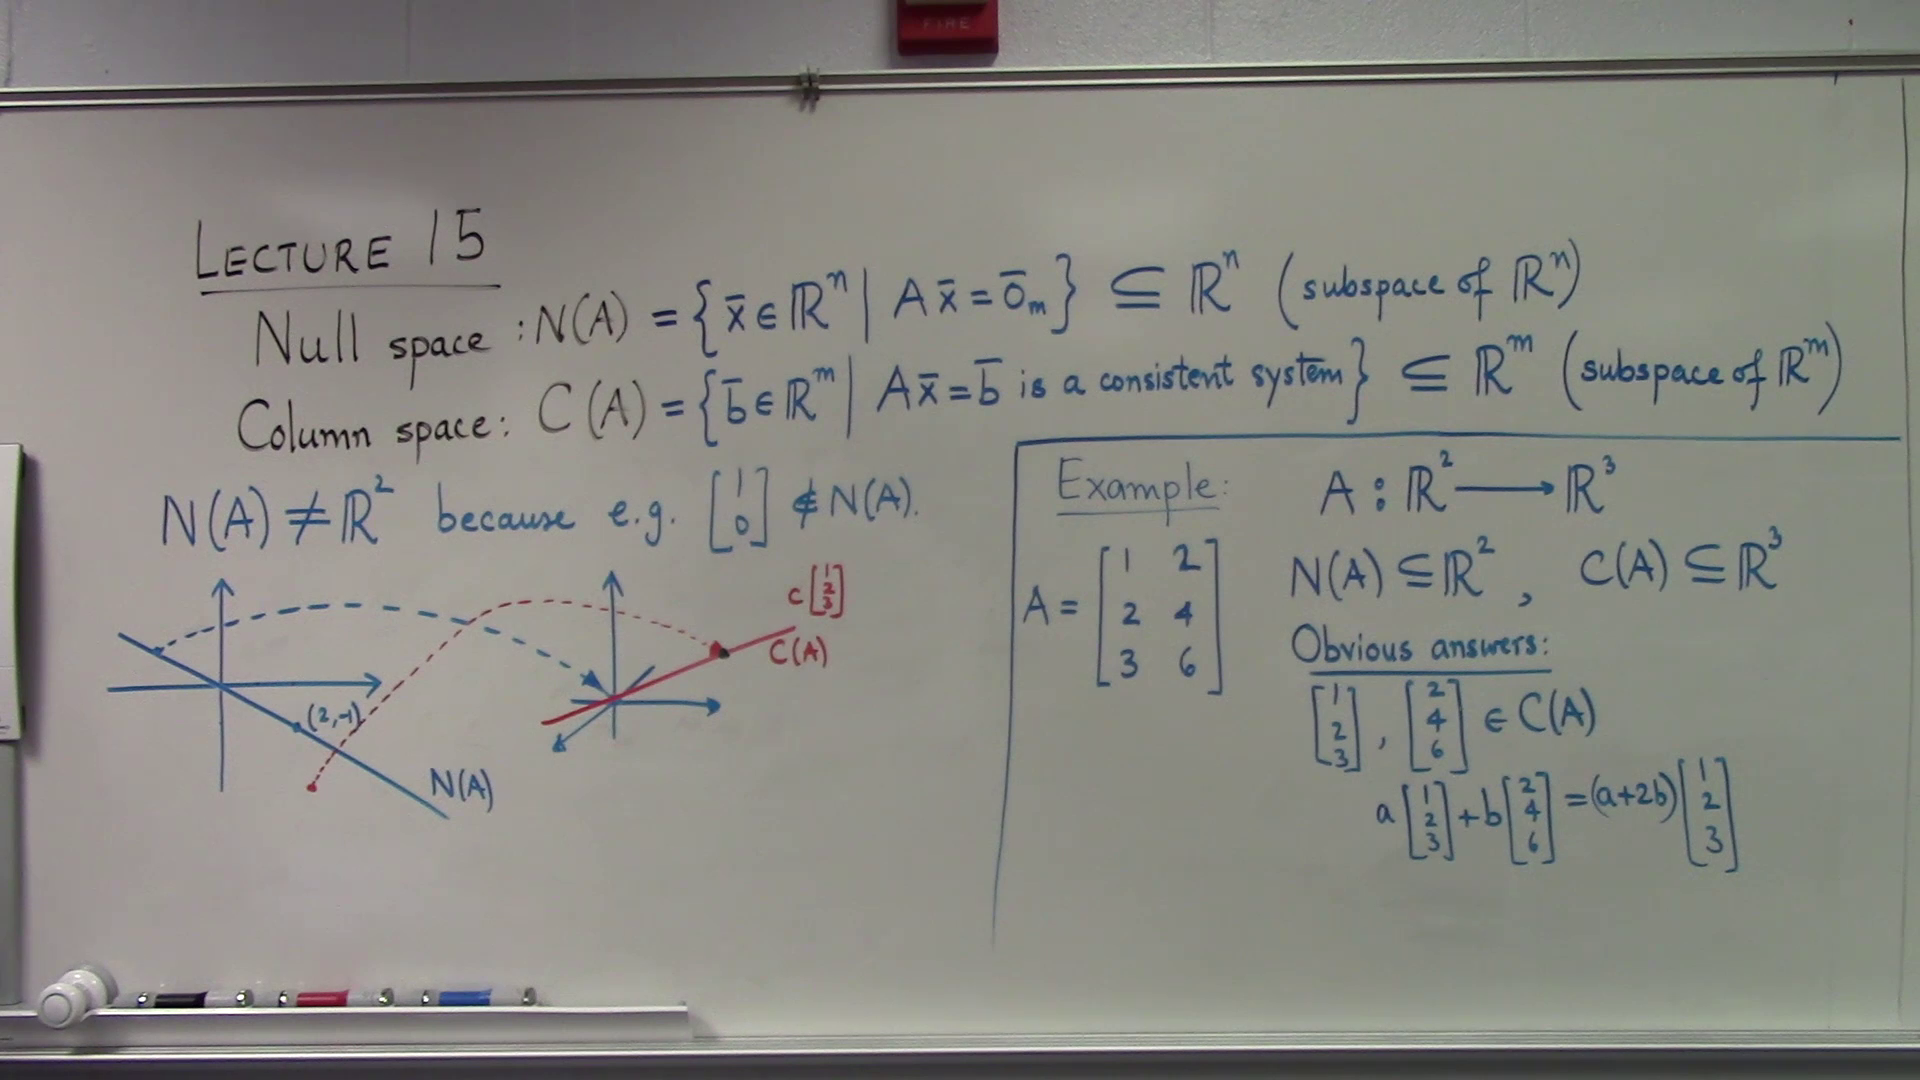 FIRE
LECTURE 15
Null space : N(A) = { x̄ ∈ ℝⁿ | Ax̄ = ō_m } ⊆ ℝⁿ (subspace of ℝⁿ)
Column space: C(A) = { b̄ ∈ ℝᵐ | Ax̄ = b̄ is a consistent system } ⊆ ℝᵐ (subspace of ℝᵐ)
N(A) ≠ ℝ² because e.g. [1 0] ∉ N(A).
(2,-1)
N(A)
c[1 2 3]
C(A)
Example: A : ℝ² → ℝ³
A = [1 2
2 4
3 6]
N(A) ⊆ ℝ² , C(A) ⊆ ℝ³
Obvious answers:
[1 2 3] , [2 4 6] ∈ C(A)
a[1 2 3] + b[2 4 6] = (a+2b)[1 2 3]